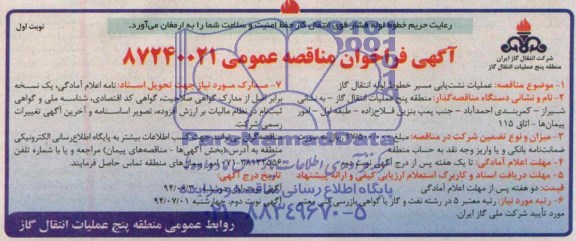 رعایت حریم خطوط لوله فشار قوی انتقال گاز حفظ امنیت و سلامت شما را به ارمغان می‌آورد.
نوبت اول
آگهی فراخوان مناقصه عمومی ۸۷۲۴۰۰۲۱
شرکت انتقال گاز ایران
منطقه پنج عملیات انتقال گاز
۱- موضوع مناقصه: عملیات نشت‌یابی مسیر خطوط لوله انتقال گاز
۲- نام و نشانی دستگاه مناقصه‌گذار: منطقه پنج عملیات انتقال گاز - به نشانی
شیراز - کمربندی احمدآباد - جنب پمپ بنزین فلاح‌زاده - طبقه اول - امور
پیمان‌ها - اتاق ۱۱۵
۳- میزان و نوع تضمین شرکت در مناقصه: مبلغ
ضمانت‌نامه بانکی و یا واریز وجه نقد به حساب منطقه
۴- مهلت اعلام آمادگی: تا یک هفته پس از درج آگهی نوبت دوم
۵- مهلت دریافت اسناد و کاربرگ استعلام ارزیابی کیفی و ارائه پیشنهاد
قیمت: دو هفته پس از مهلت اعلام آمادگی
۶- رتبه مورد نیاز: رتبه معتبر ۵ در رشته نفت و گاز یا گواهی بازرسی فنی معتبر
مورد تأیید شرکت ملی گاز ایران.
۷- مدارک مورد نیاز جهت تحویل اسناد: نامه اعلام آمادگی، یک نسخه
برابر اصل از مدارک گواهی صلاحیت، گواهی کد اقتصادی، شناسه ملی و گواهی
ثبت‌نام در نظام مالیات بر ارزش افزوده، تصویر اساسنامه و آخرین آگهی تغییرات
رسمی شرکت
مناقصه‌گران می‌توانند جهت کسب اطلاعات بیشتر به پایگاه اطلاع‌رسانی الکترونیکی
منطقه به آدرس (بخش آگهی‌ها - مناقصه‌های پیمان) مراجعه و یا با شماره تلفن
امور پیمان‌های منطقه تماس حاصل فرمایند.
تاریخ درج آگهی:
آگهی نوبت دوم: چهارشنبه ۹۴/۰۷/۰۱
روابط عمومی منطقه پنج عملیات انتقال گاز
پایگاه اطلاع رسانی مناقصه و مزایده
۰۲۱-۸۸۳۴۹۶۷۰-۵